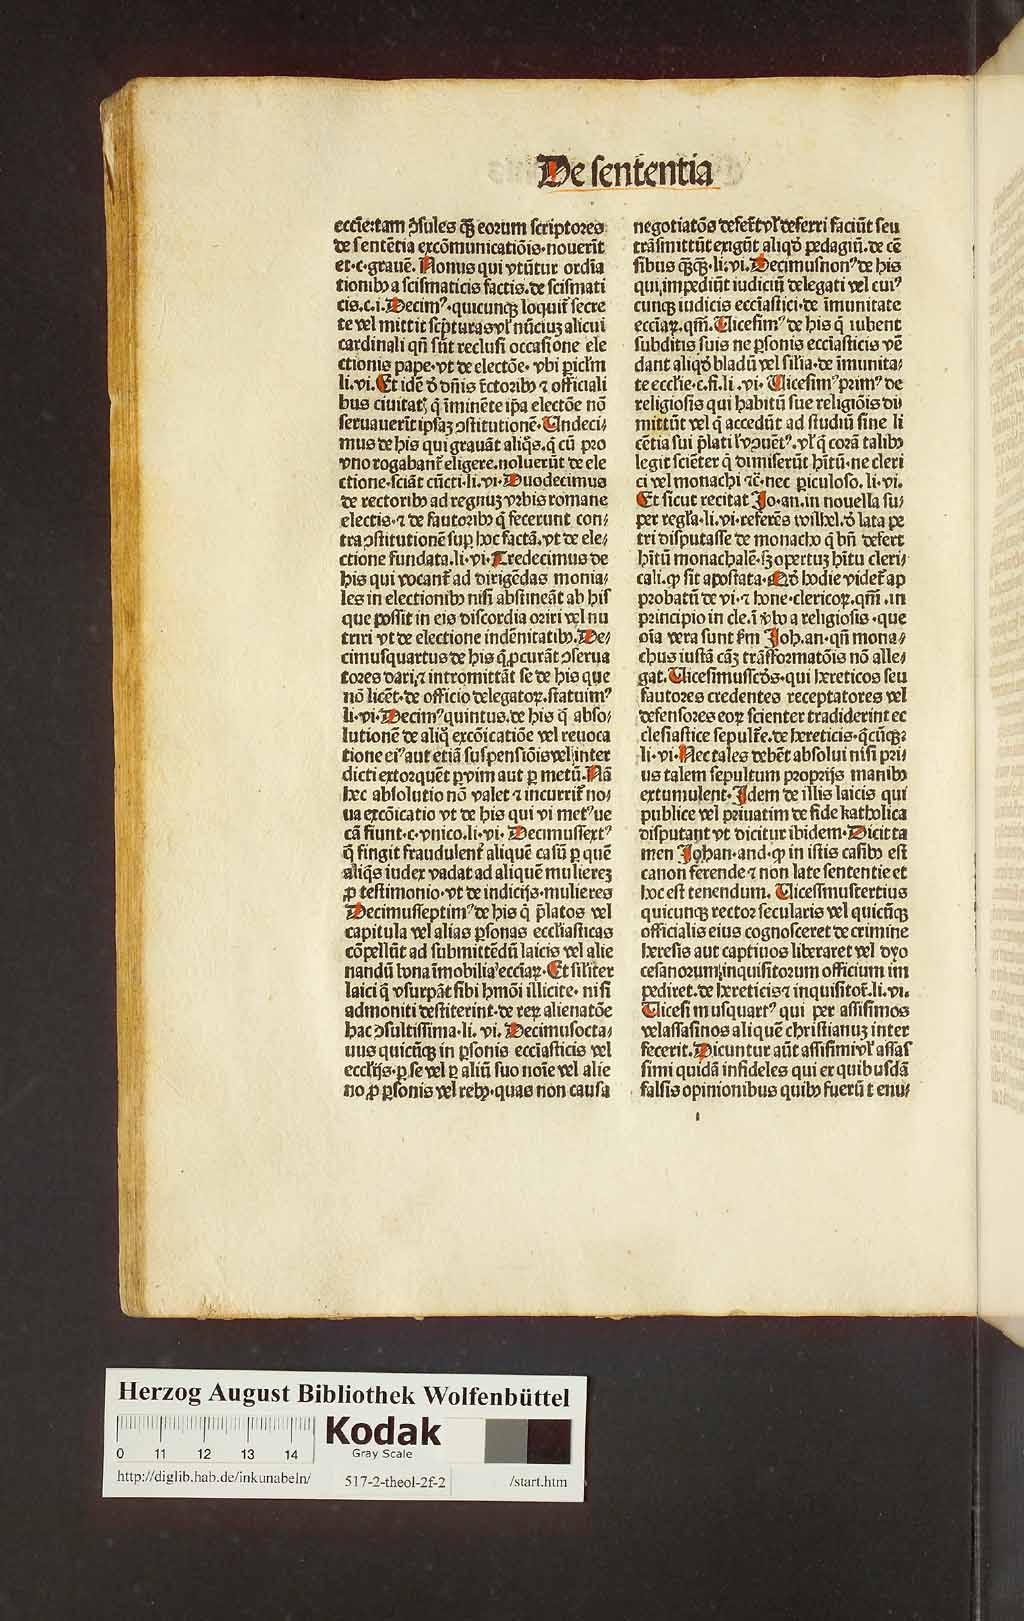 De sententia
eccĩe:tam ꝯsules q̄ꝫ eorum scriptores
de sentētia excōmunicatiōis·nouerīt
et·c·grauē. Nonus qui vtūtur ordīa
tionibꝰ a scismaticis factis.de scismati
cis.c.i.Decimꝰ·quicunqꝫ loquit̃ secre
te vel mittit sc̃pturas vl̃ nūciuꝫ alicui
cardinali qñ sūt reclusi occasione ele
ctionis pape·vt de electōe·vbi piclm̃
li.vi.Et idē ð dñis r̃ctoribꝰ ⁊ officiali
bus ciuitatꝭ q̃ īminēte ip̃a electōe nō
seruauerīt ipsaꝫ ꝯstitutionē·Undeci⸗
mus de his qui grauāt aliq̃s.q̃ cū pro
vno rogabant̃ eligere.noluerūt de ele
ctione·sciāt cūcti·li·vi·Duodecimus
de rectoribꝰ ad regnuꝫ vrbis romane
electis·⁊ de fautoribꝰ q̃ fecerunt con⸗
tra ꝯstitutionē sup̱ hoc factā.vt de ele⸗
ctione fundata.li·vi·Tredecimus de
his qui vocant̃ ad dirigēdas monia⸗
les in electionibꝰ nisi abstineāt ab his
que possit in eis discordia oriri vel nu
triri vt de electione indēnitatibꝰ.De⸗
cimusquartus de his q̃ ꝓcurāt ꝯserua
tores dari;⁊ intromittāt se de his que
nō licēt·de officio delegatoꝝ.statuimꝰ
li·vi·Decimꝰquintus.de his q̃ abso⸗
lutionē de aliq̃ excōicatiōe vel reuoca
tione eiꝰ aut etiā suspensiōis vel inter
dicti extorquēt ꝑ vim aut ꝑ metū.Nā
hec absolutio nō valet ⁊ incurrit̃ no⸗
ua excōicatio vt de his qui vi metꝰue
cā fiunt·c·vnico.li·vi·Decimussextꝰ
q̃ fingit fraudulent̃ aliquē casū ꝑ quē
aliq̃s iudex vadat ad aliquē muliereꝫ
ꝓ testimonio·vt de indicijs·mulieres
Decimusseptimꝰ de his q̃ p̃latos vel
capitula vel alias ꝑsonas eccl̃iasticas
cōpellūt ad submittēdū laicis vel alie
nandū bona īmobilia eccĩaꝝ·Et sil̃iter
laici q̃ vsurpāt sibi hmōi illicite· nisi
admoniti destiterint·de reꝝ alienatōe
hac ꝯsultissima·li. vi. Decimusocta⸗
uus quicūqꝫ in ꝑsonis eccĩasticis vel
eccl̃ijs·ꝑ se vel ꝑ aliū suo noīe vel alie
no ꝓ ꝑsonis vel rebꝰ·quas non causa
negotiatōis defer̃t vl̃ deferri faciūt seu
trāsmittūt exigūt aliqð pedagiū.de cē
sibus q̄ꝫq̄ꝫ·li·vi.Decimusnonꝰ de his
qui impediūt iudiciū delegati vel cuiꝰ
cunqꝫ iudicis eccĩastici·de īmunitate
eccĩaꝝ.qm̃.Uicesimꝰ de his q̃ iubent
subditis suis ne ꝑsonis eccĩasticis vē
dant aliqð bladū vel sil̃ia·de īmunita⸗
te eccl̃ie·c.fi.li .vi·Uicesimꝰprimꝰ de
religiosis qui habitū sue religiōis di
mittūt vel q̃ accedūt ad studiū sine li
cētia sui p̃lati ⁊ ꝯuētꝰ.vl̃ q̃ corā talibꝰ
legit sciēter q̃ dimiserūt h̃itū·ne cleri
ci vel monachi ⁊c̃·nec piculoso.li·vi.
Et sicut recitat Jo·an.in nouella su⸗
per regl̃a·li·vi·referēs wilhel.ð lata pe
tri disputasse de monacho q̃ bñ defert
h̃itū monachalē·sꝫ opertuꝫ h̃itu cleri⸗
cali.ꝙ sit apostata·Qð hodie videt̃ ap
probatū de vi·⁊ hone·clericoꝝ.qm̃ .in
principio in cle.i ṽbo a religiosis ·que
oīa vera sunt km̃ Joh.an·qñ mona⸗
chus iustā cāꝫ trāsformatōis nō alle⸗
gat.Uicesimusscðs·qui hereticos seu
fautores credentes receptatores vel
defensores eoꝝ scienter tradiderint ec
clesiastice sepult̃e.de hereticis·q̃cūqꝫ:
li·vi·Nec tales debēt absolui nisi pri⸗
us talem sepultum proprijs manibꝰ
extumulent·Idem de illis laicis qui
publice vel priuatim de fide katholica
disputant vt dicitur ibidem·Dicit ta
men Johan·and·ꝙ in istis casibꝰ est
canon ferende ⁊ non late sententie et
hoc est tenendum. Uicesimustertius
quicunqꝫ rector secularis vel quicūqꝫ
officialis eius cognosceret de crimine
heresis aut captiuos liberaret vel dyo
cesanorum;inquisitorum officium im
pediret.de hereticis ⁊ inquisitor̃.li.vi.
Uicesimusquartꝰ qui per assisimos
vel assasinos aliquē christianuꝫ inter
fecerit.Dicuntur aūt assisimi vl̃ assas
simi quidā infideles qui ex quibusdā
falsis opinionibus quibꝰ fuerūt enu⸗
Herzog August Bibliothek Wolfenbüttel
0 11 12 13 14
Kodak
Gray Scale
http://diglib.hab.de/inkunabeln/ 517-2-theol-2f-2 /start.htm